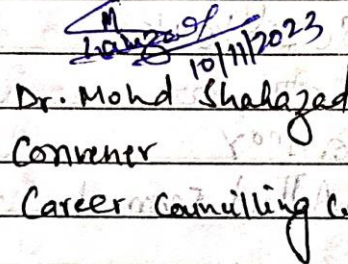 10/11/2023
Dr. Mohd Shahazad
Convener
Career Councilling C